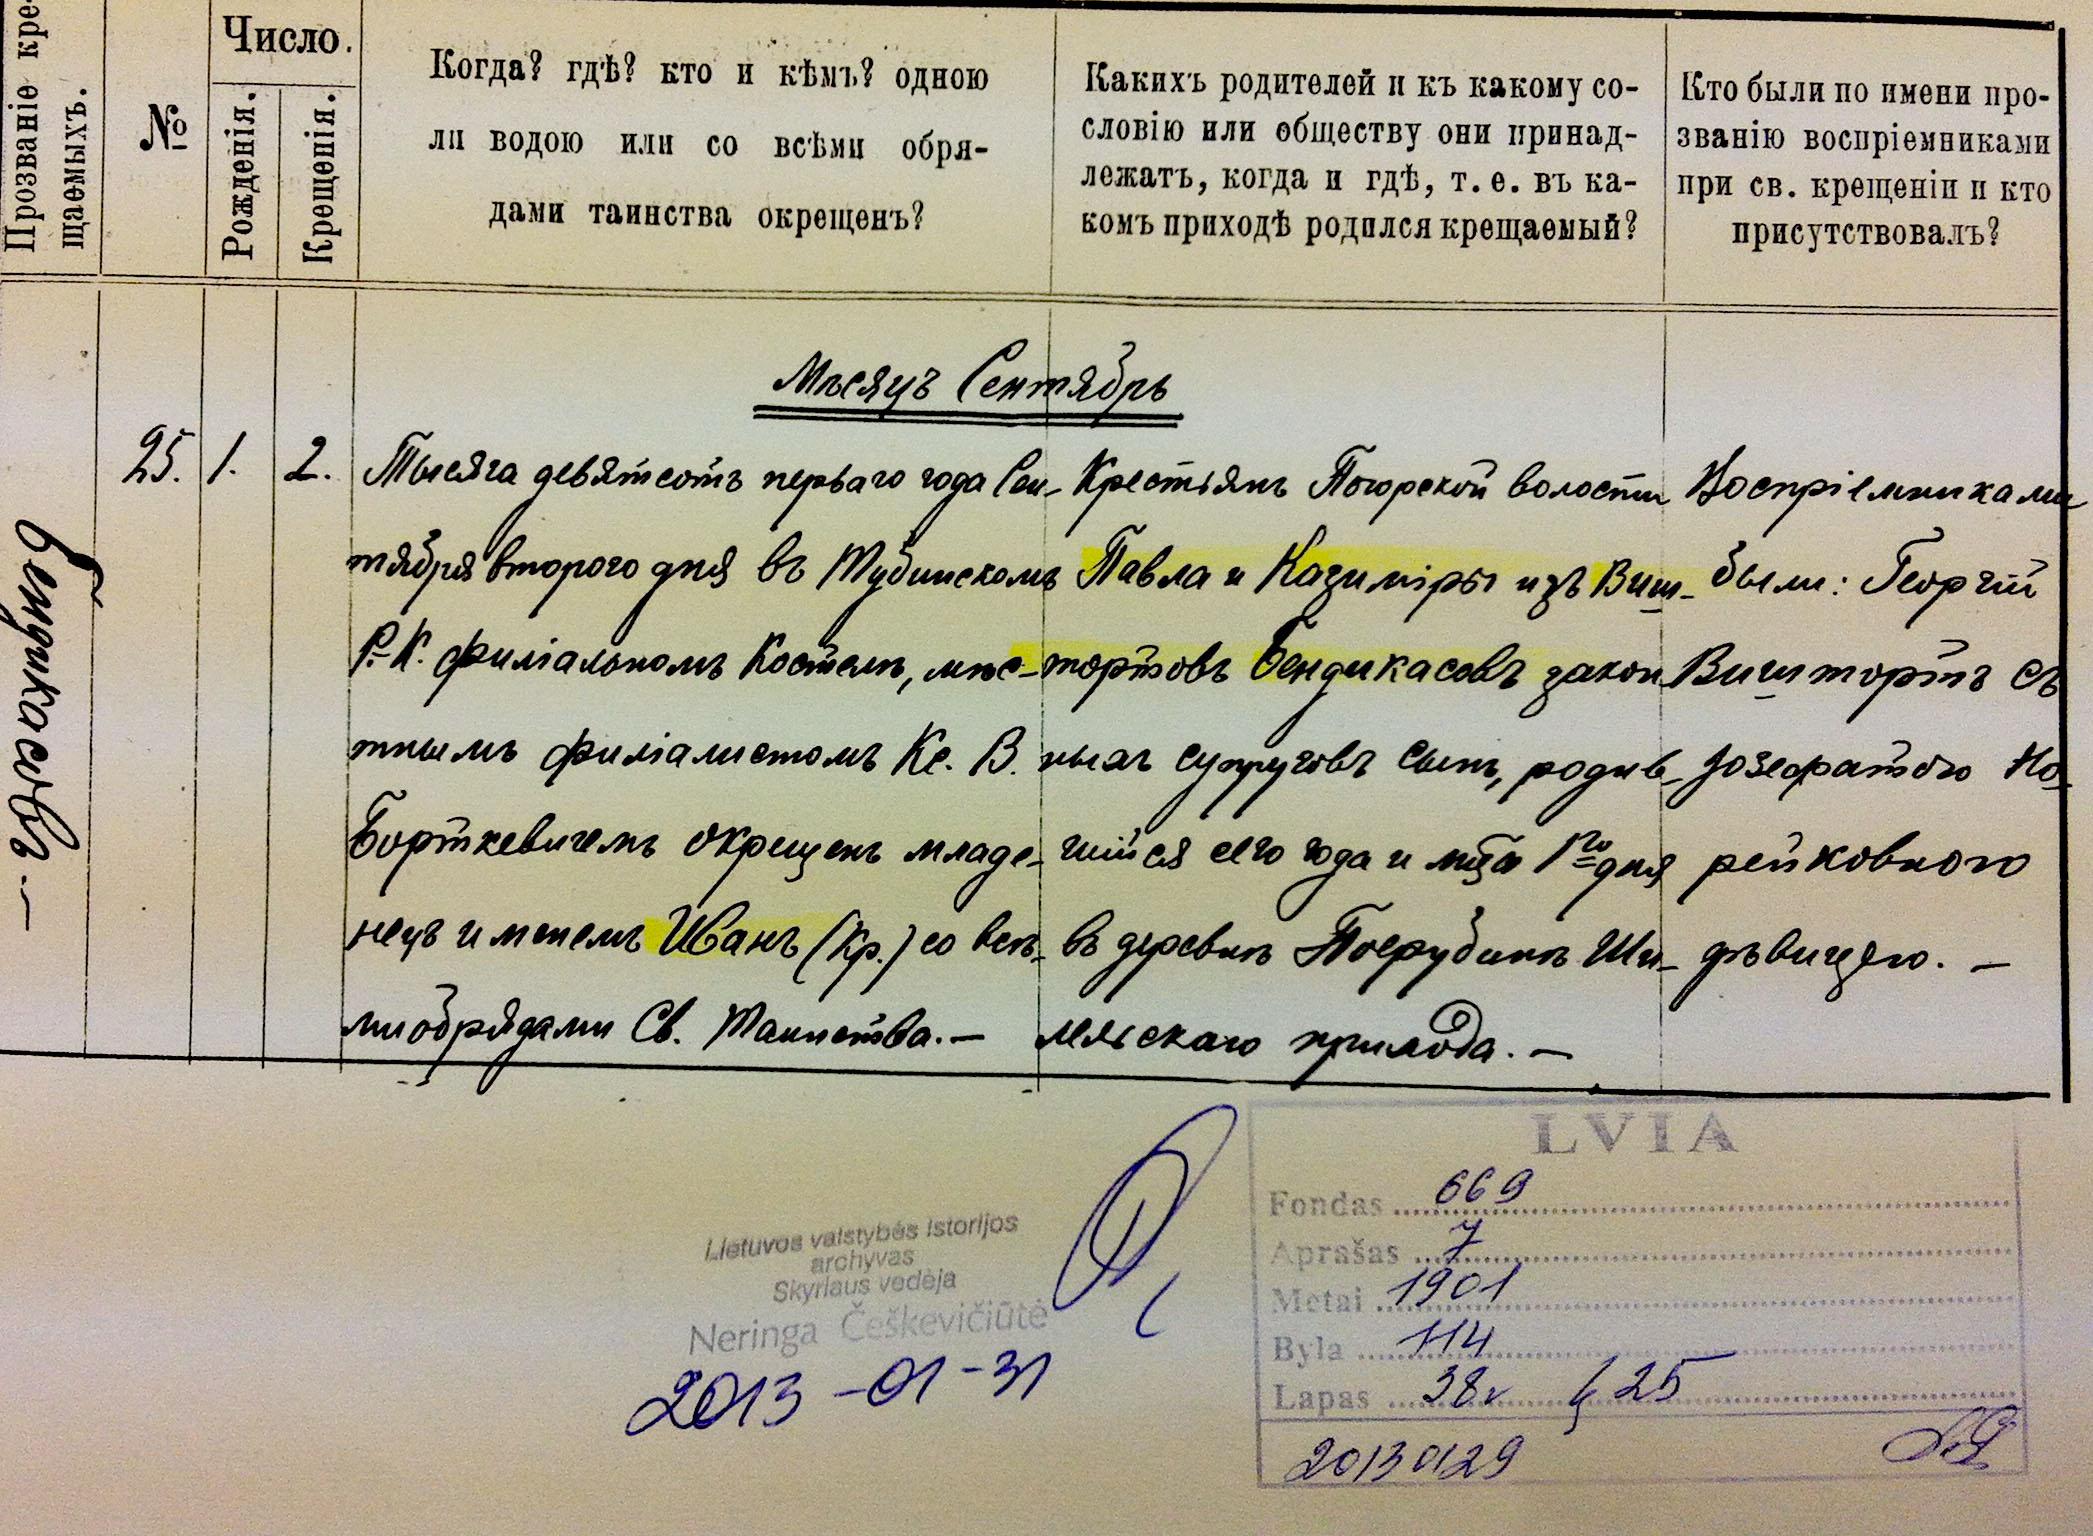 Прозваніе кре-
щаемыхъ.
№
Число.
Рожденія.
Крещенія.
Когда? гдѣ? кто и кѣмъ? одною
ли водою или со всѣми обря-
дами таинства окрещенъ?
Какихъ родителей и къ какому со-
словію или обществу они принад-
лежатъ, когда и гдѣ, т. е. въ ка-
комъ приходѣ родился крещаемый?
Кто были по имени про-
званію воспріемниками
при св. крещеніи и кто
присутствовалъ?
Мѣсяцъ Сентябрь
Бендикасовъ. —
25.
1.
2.
Тысяча девятсотъ перваго года Сен-
тября второго дня въ Тубинскомъ
Р. К. филіальномъ Костелѣ, мѣс-
тнымъ филіалистомъ Кс. В.
Борткевичемъ окрещенъ младе-
нецъ именемъ Иванъ (Кр.) со всѣ-
ми обрядами Св. Таинства. —
Крестьянъ Погорской волости
Павла и Казиміры изъ Виш-
тортовъ Бендикасовъ закон-
ныхъ супруговъ сынъ, родив-
шійся сего года и мца 1го дня
въ деревнѣ Посрубинѣ Ши-
лельскаго прихода. —
Воспріемниками
были: Георгій
Виштортъ съ
Іозефатою Но-
рейковною
дѣвицею. —
Lietuvos valstybės istorijos
archyvas
Skyriaus vedėja
Neringa Češkevičiūtė
2013-01-31
LVIA
Fondas 669
Aprašas 7
Metai 1901
Byla 114
Lapas 38v 25
20130129